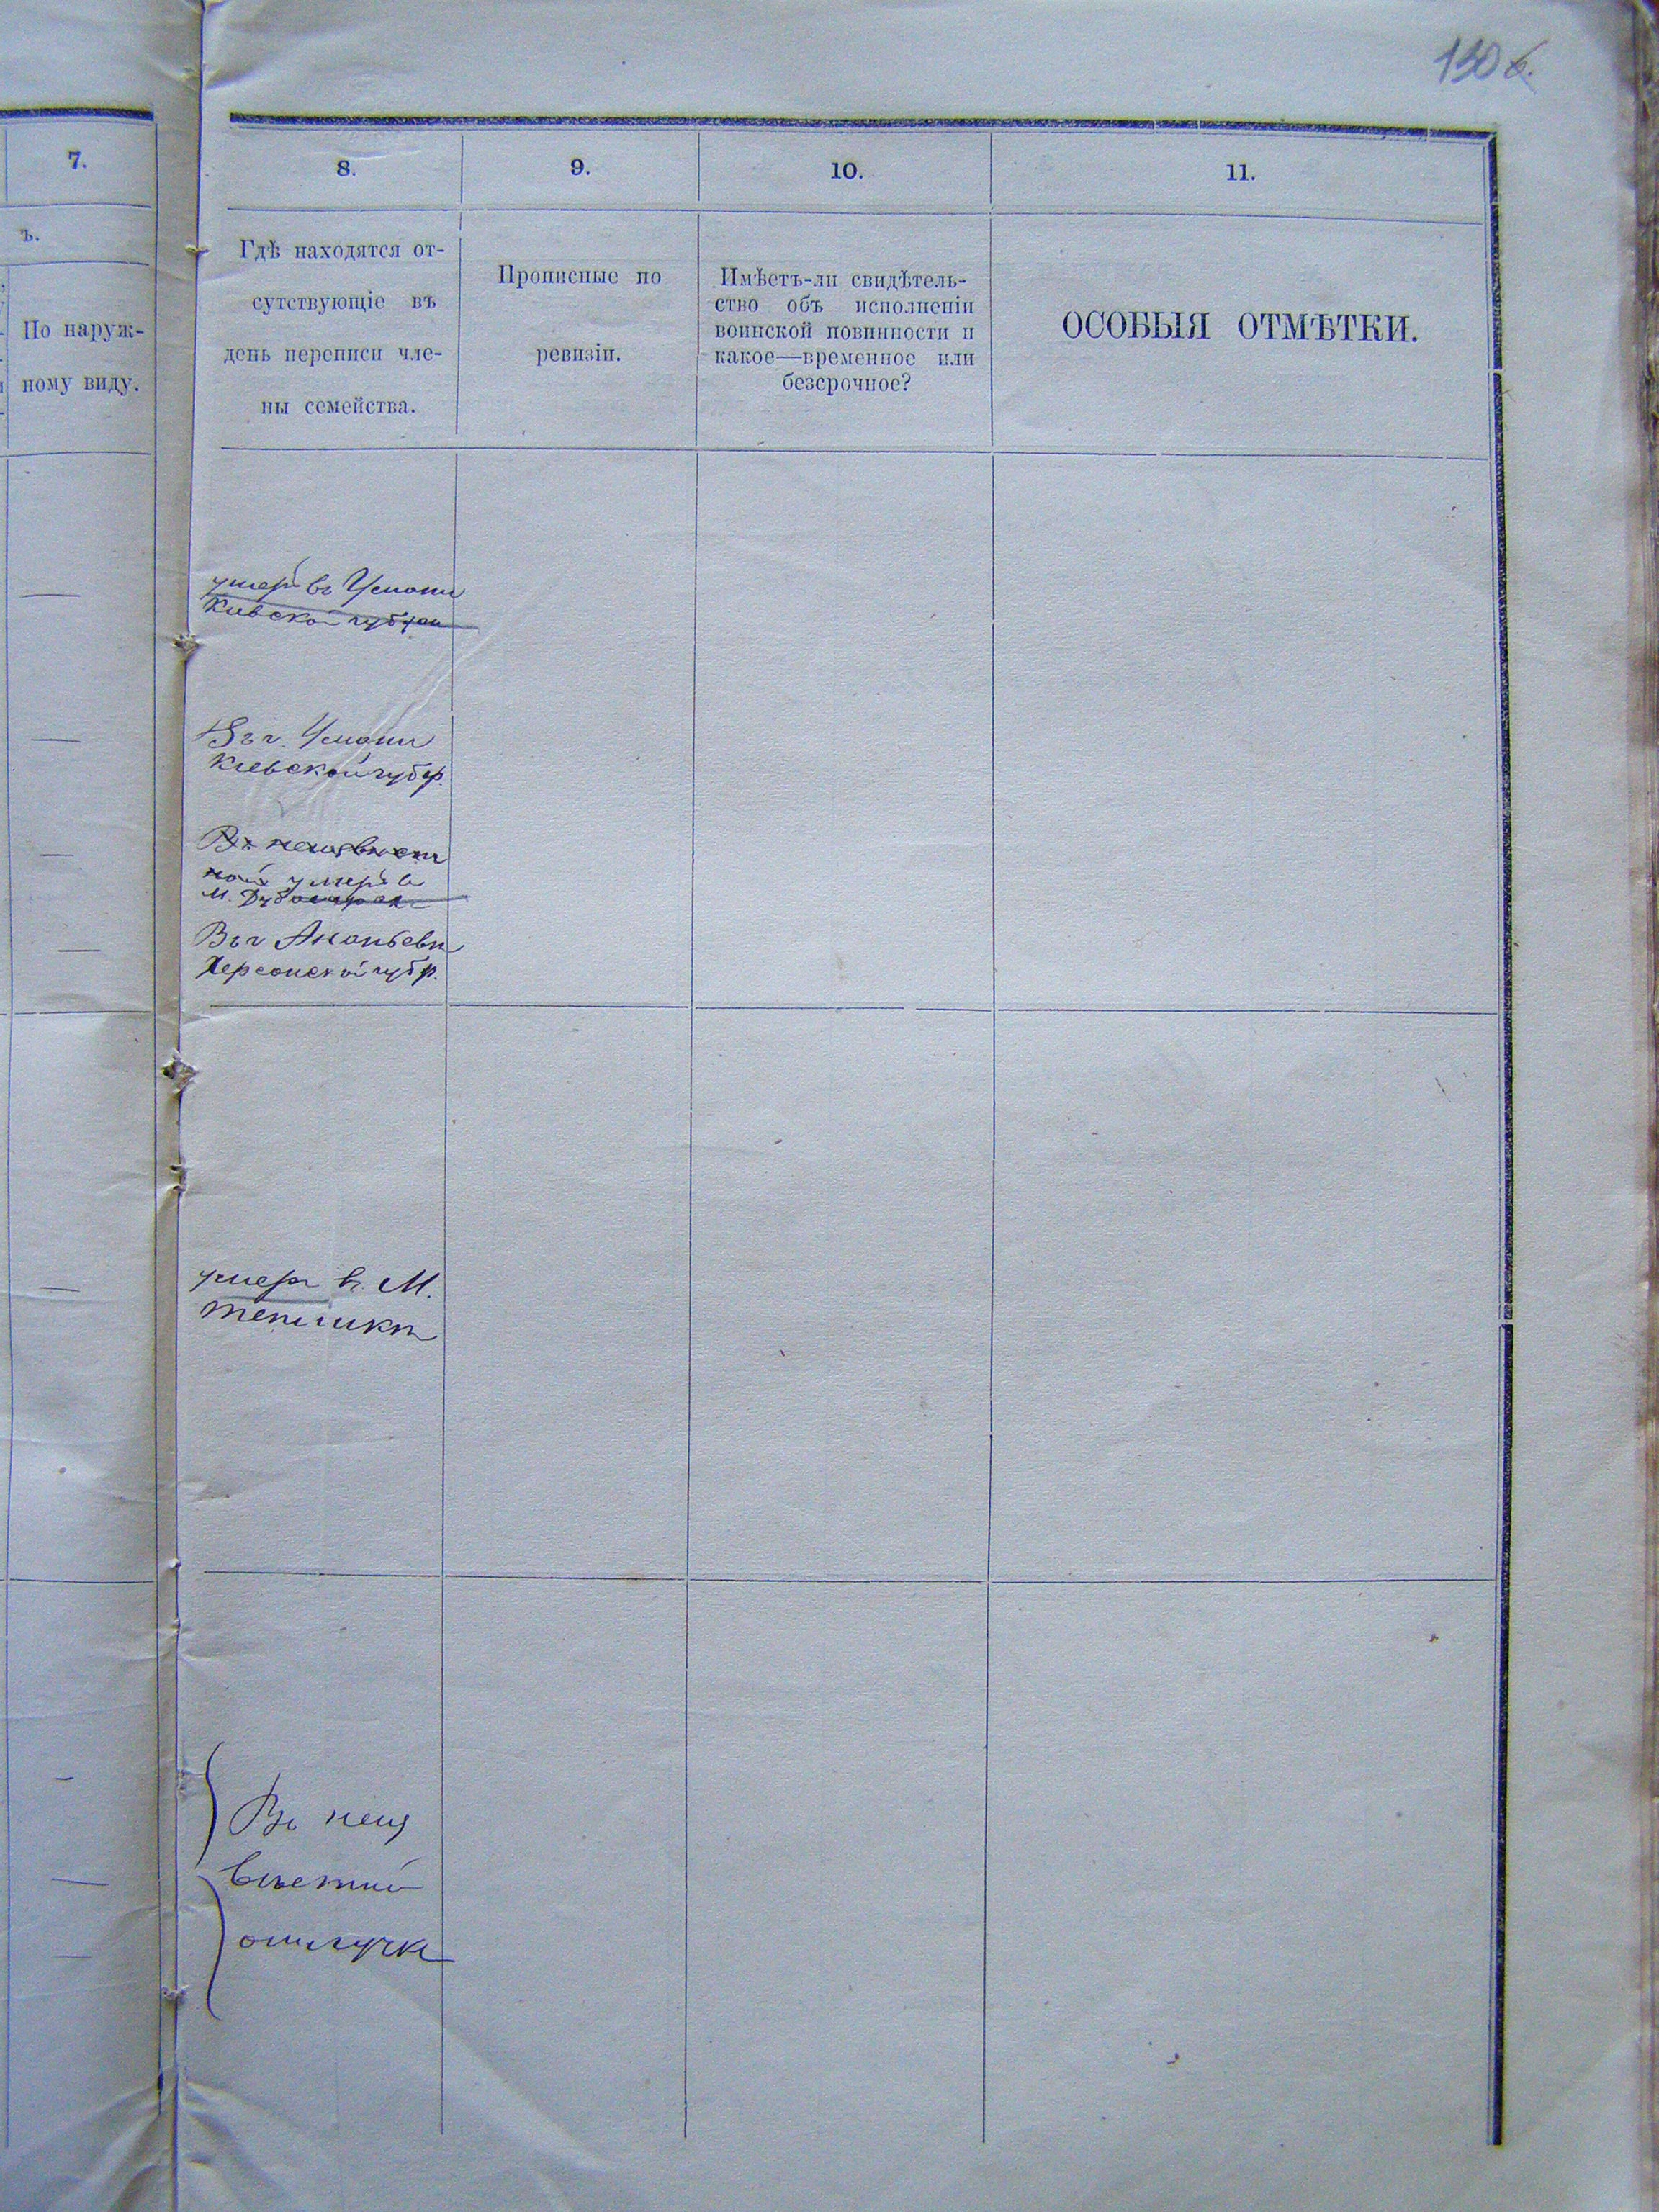 130 б.
7.
ъ.
По наруж-
ному виду.
8.
Гдѣ находятся от-
сутствующіе въ
день переписи чле-
ны семейства.
9.
Прописные по
ревизіи.
10.
Имѣетъ-ли свидѣтель-
ство объ исполненіи
воинской повинности и
какое—временное или
безсрочное?
11.
ОСОБЫЯ ОТМѢТКИ.
умеръ въ Умани
Кіевской губерн
Въ г. Умани
Кіевской губер.
Въ неизвѣст
ной умеръ в
М.
Въ г Ананьевѣ
Херсонской губер.
умеръ въ М.
Тепликѣ
Въ неиз
вѣстной
отлучкѣ